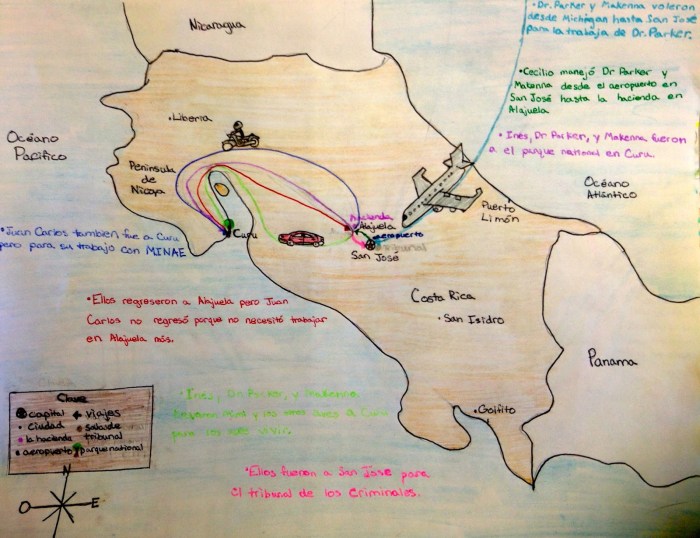 • Dr. Parker y Makenna voleron
desde Michigan hasta San José
para la trabaja de Dr. Parker.
• Cecilio manejó Dr Parker y
Makenna desde el aeropuerto en
San José hasta la hacienda en
Alajuela
• Ines, Dr Parker, y Makenna fueron
a el parque national en Curu.
Nicaragua
• Liberia
Océano
Pacífico
Peninsula
de
Nicoya
Océano
Atlántico
Puerto
Limón
hacienda
Alajuela
aeropuerto
tribunal
San José
Curu
• Juan Carlos tambien fue a Curu
pero para su trabajo con MINAE
• Ellos regreseron a Alajuela pero Juan
Carlos no regresó porque no necesitó trabajar
en Alajuela más.
Costa Rica
• San Isidro
Panama
• Golfito
Clave
capital
viajes
• Ciudad
sala de
tribunal
la hacienda
aeropuerto
parque national
• Ines, Dr. Parker, y Makenna
a Curu
para vivir.
• Ellos fueron a San Jose para
el tribunal de los Criminales.
N
O E